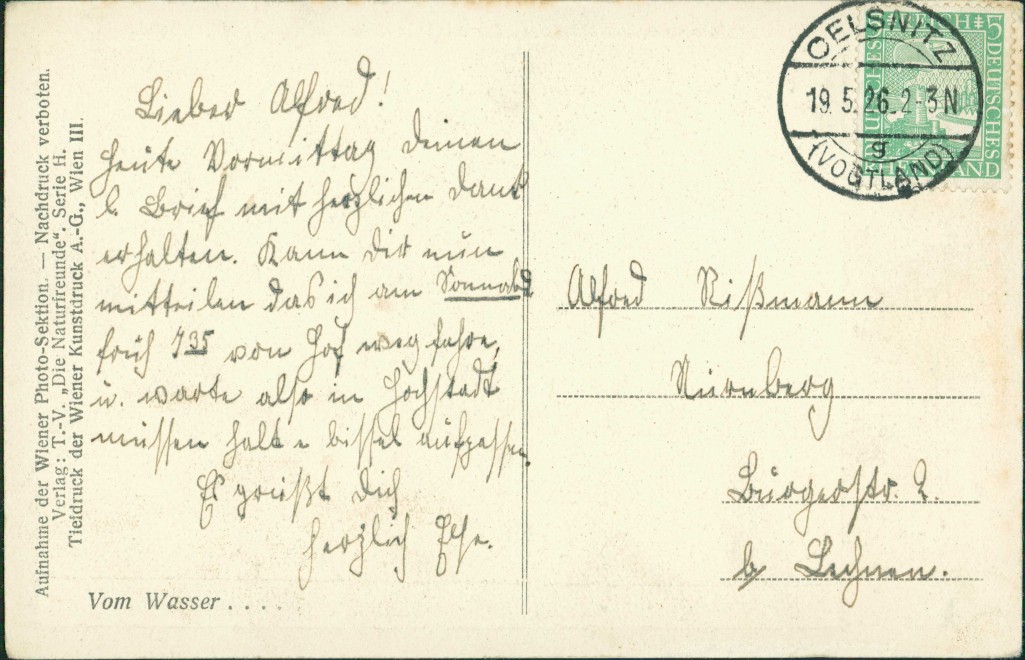 Aufnahme der Wiener Photo-Sektion. — Nachdruck verboten.
Verlag: T.-V. „Die Naturfreunde“. Serie H.
Tiefdruck der Wiener Kunstdruck A.-G., Wien III.
Lieber Alfred!
Heute Vormittag Deinen
l. Brief mit herzlichen Dank
erhalten. Kann Dir nun
mitteilen das ich am Sonnabd
früh 7 35 von Hof weg fahre,
u. warte also in Hochstadt
müssen halt e bissel aufpassen.
Es grüßt Dich
herzlich Else.
Vom Wasser . . . .
OELSNITZ
19. 5. 26. 2-3 N
g
(VOGTLAND)
5
DEUTSCHES
Alfred Rißmann
Nürnberg
Bürgerstr. 2.
b/